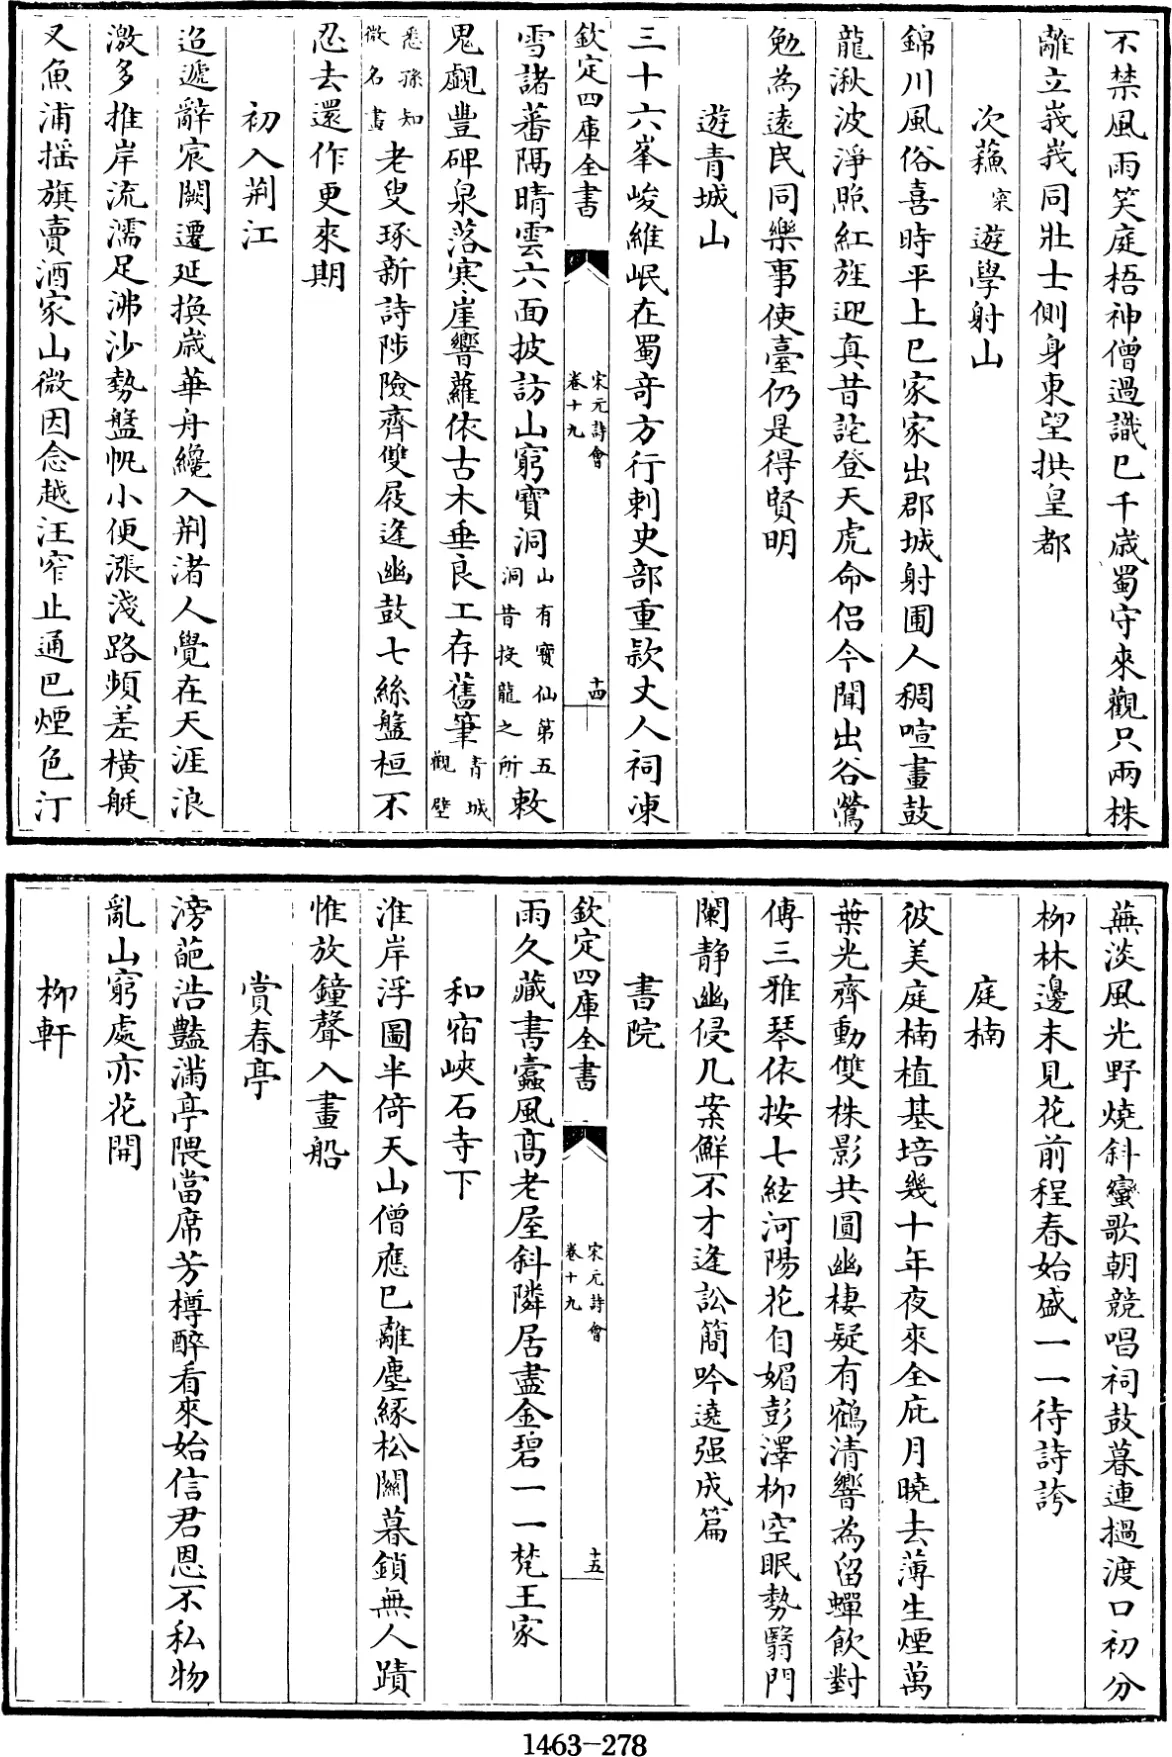 不禁風雨笑庭梧神僧過識已千歳蜀守來觀只兩株
離立峩峩同壯士側身東望拱皇都
次蘓寀遊學射山
錦川風俗喜時平上巳家家出郡城射圃人稠喧畫鼓
龍湫波淨照紅旌迎真昔詫登天虎命侣今聞出谷鶯
勉為遠民同樂事使臺仍是得賢明
遊青城山
三十六峯峻維岷在蜀竒方行刺史部重款丈人祠凍
欽定四庫全書
宋元詩會
卷十九
十四
雪諸蕃隔晴雲六面披訪山窮寳洞山有寳仙第五洞昔投龍之所敕
鬼覷豐碑泉落寒崖響蘿依古木垂良工存舊筆青城觀壁
悉孫知微名畫老叟琢新詩陟險齊雙屐逢幽鼓七絲盤桓不
忍去還作更來期
初入荆江
迢遞辭宸闕遷延換歳華舟纔入荆渚人覺在天涯浪
激多推岸流濡足沸沙勢盤帆小便漲淺路頻差横艇
叉魚浦揺旗賣酒家山微因念越汪窄止通巴煙色汀
蕪淡風光野燒斜蠻歌朝競唱祠鼓暮連撾渡口初分
柳林邊未見花前程春始盛一一待詩誇
庭楠
彼美庭楠植基培幾十年夜來全庇月曉去薄生煙萬
葉光齊動雙株影共圓幽棲疑有鶴清響為留蟬飲對
傅三雅琴依按七絃河陽花自媚彭澤柳空眠勢翳門
闌靜幽侵几案鮮不才逢訟簡吟遶强成篇
書院
欽定四庫全書
宋元詩會
卷十九
十五
雨久藏書蠧風髙老屋斜隣居盡金碧一一梵王家
和宿峽石寺下
淮岸浮圖半倚天山僧應已離塵緣松關暮鎖無人蹟
惟放鐘聲入畫船
賞春亭
滂葩浩豔滿亭隈當席芳樽醉看來始信君恩不私物
亂山窮處亦花開
柳軒
1463-278